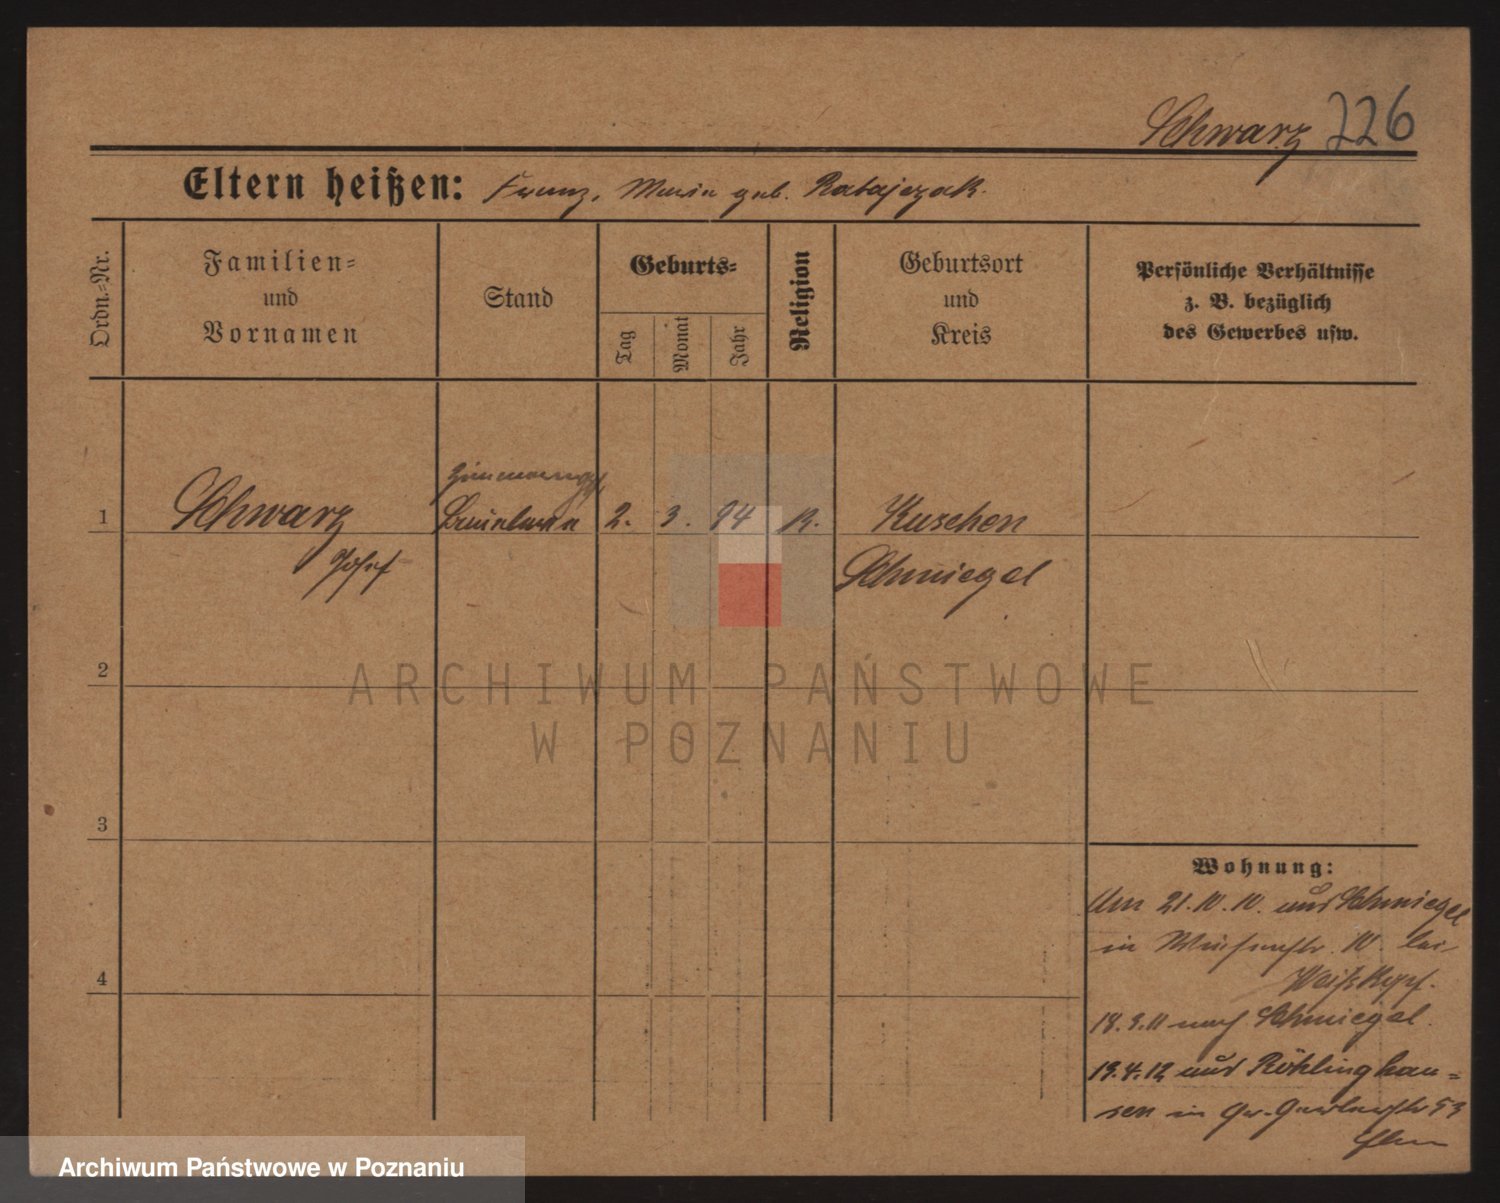 Schwarz 226
Eltern heißen: Franz, Maria geb. Ratajczak.
Ordn.-Nr.
Familien-
und
Vornamen
Stand
Geburts-
Tag
Monat
Jahr
Religion
Geburtsort
und
Kreis
Persönliche Verhältnisse
z. B. bezüglich
des Gewerbes usw.
1 Schwarz 2. 3. 94 K. Kuschen
Josef Schmiegel
2
3
4
Wohnung:
Am 21.10.10. aus Schmiegel
in 10. bei
Weißkopf.
18.3.11 nach Schmiegel.
19.4.12 aus Röhlinghau-
sen in Gr. Gerberstr 53
ARCHIWUM PAŃSTWOWE
W POZNANIU
Archiwum Państwowe w Poznaniu